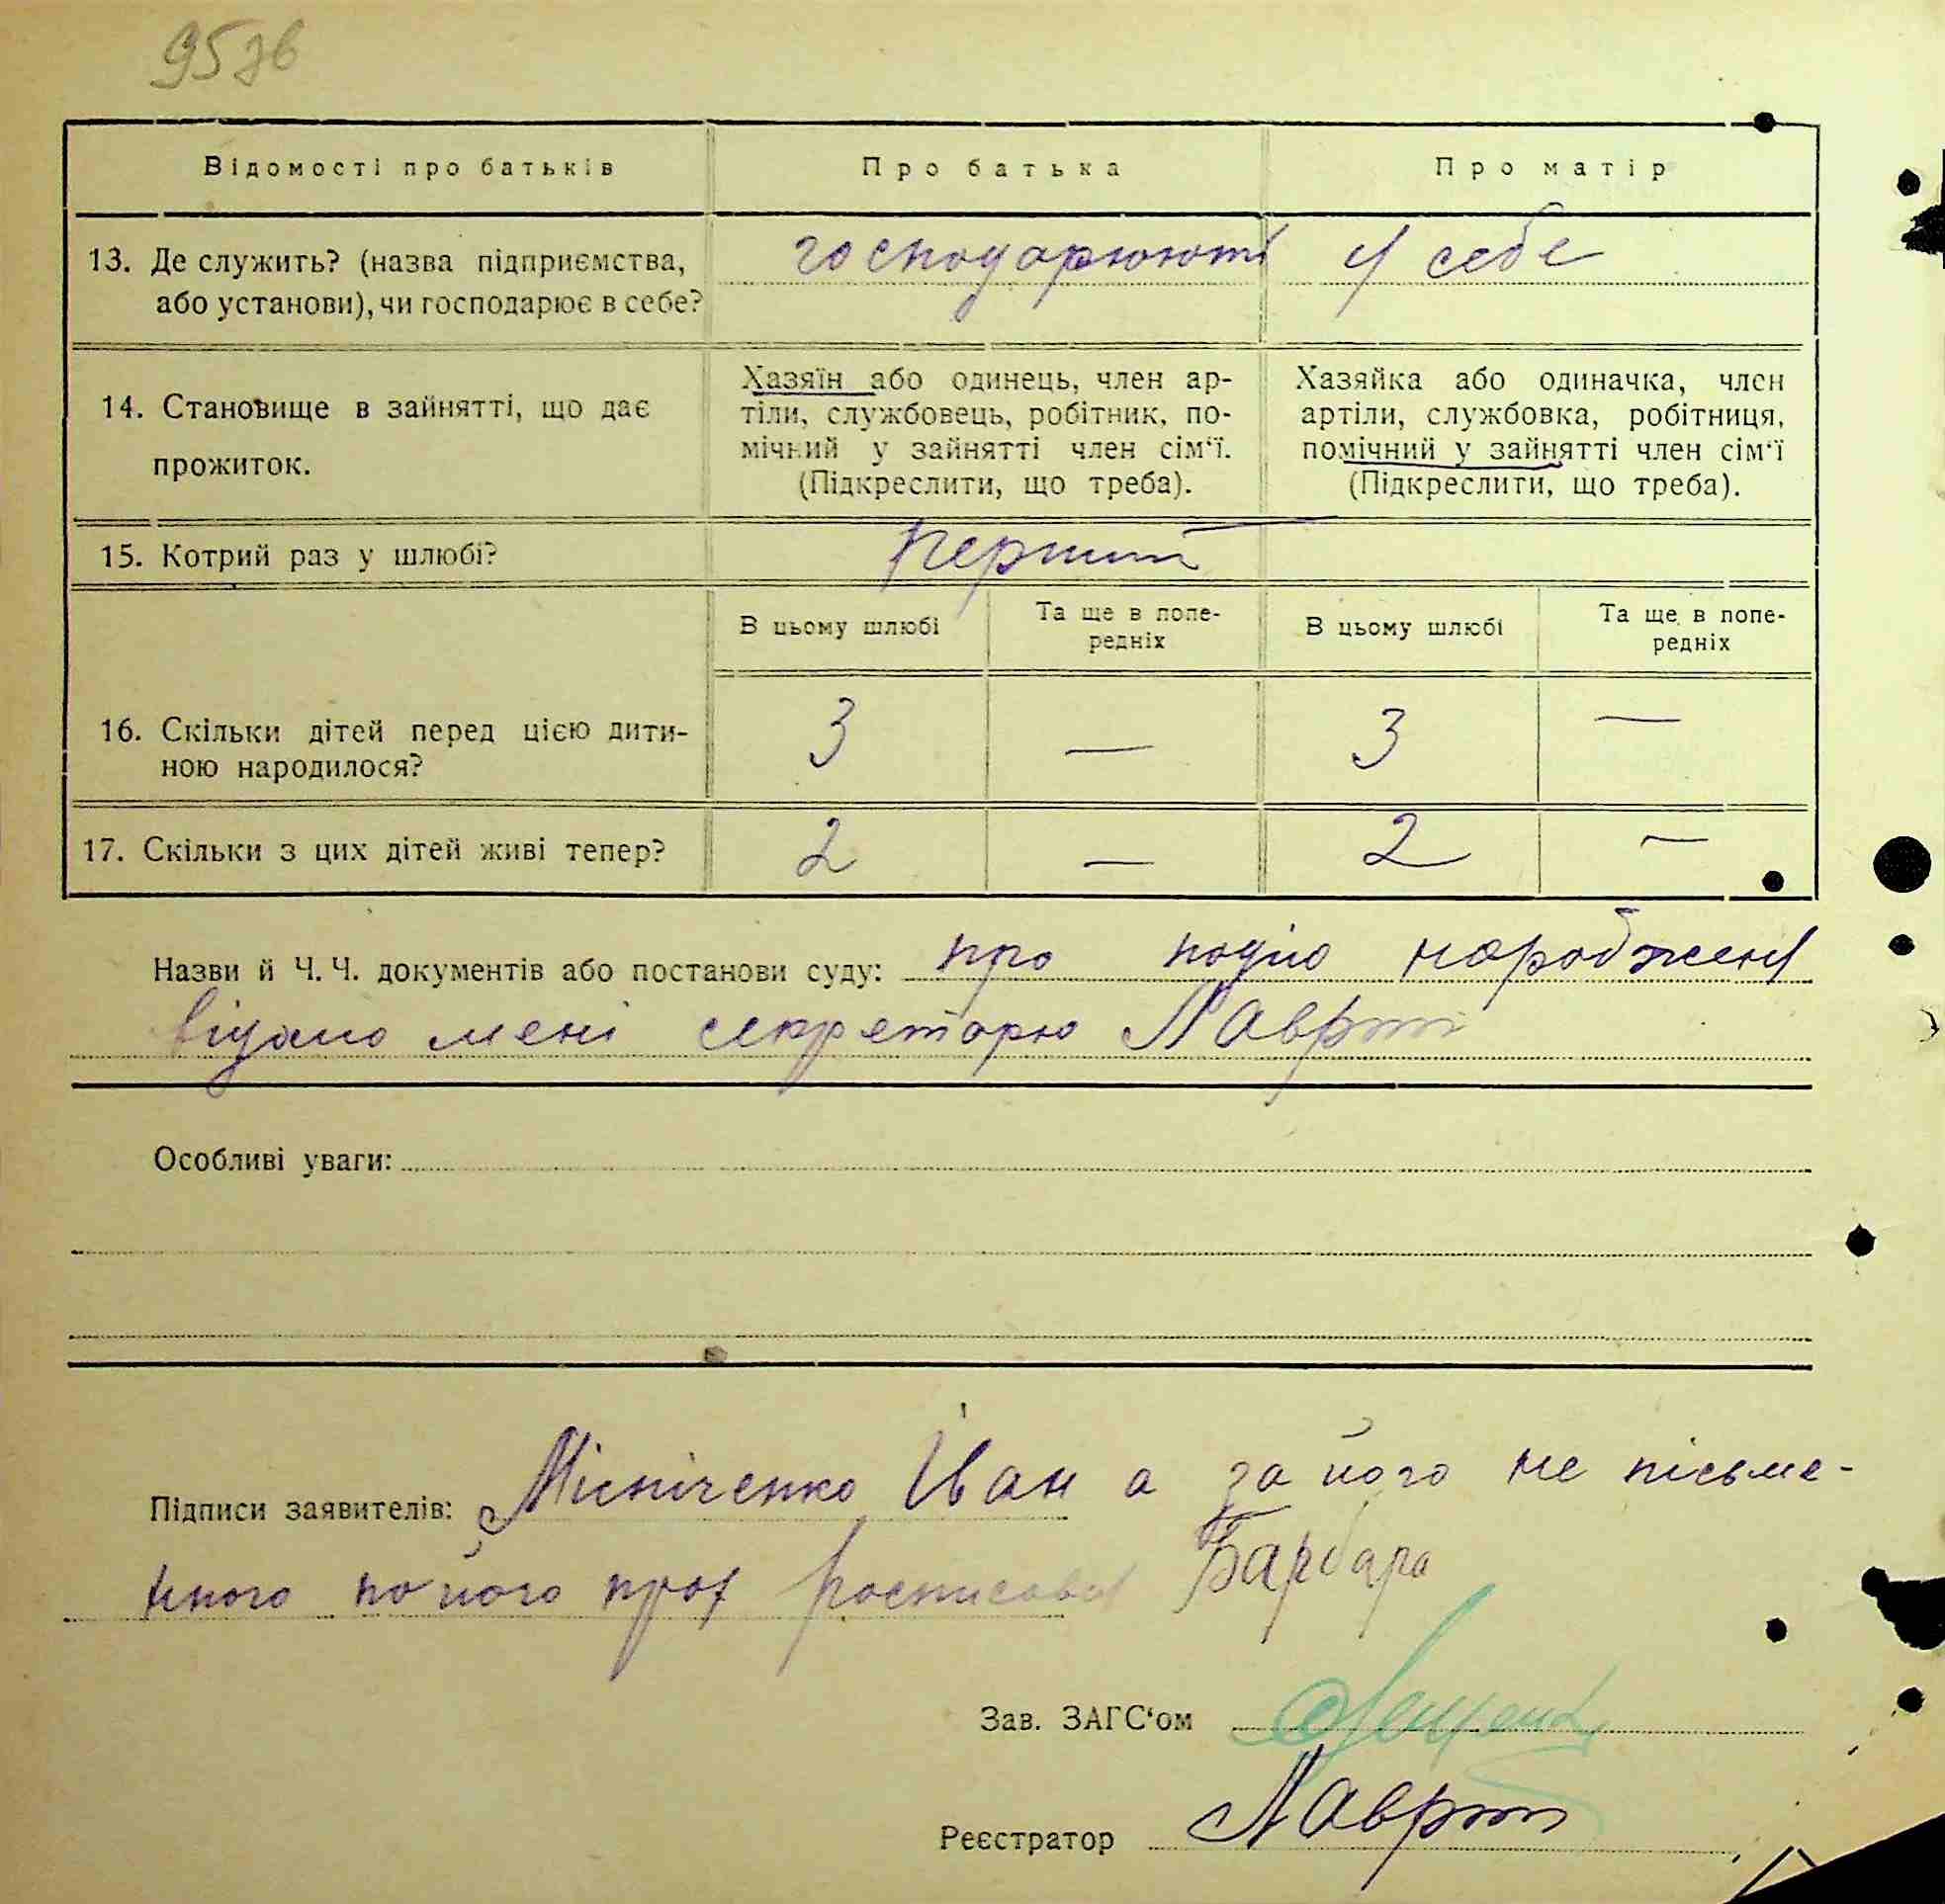 95зв
Відомості про батьків
Про батька
Про матір
13. Де служить? (назва підприємства,
або установи), чи господарює в себе?
господарюють у себе
14. Становище в зайнятті, що дає
прожиток.
Хазяїн або одинець, член ар-
тіли, службовець, робітник, по-
мічний у зайнятті член сім‘ї.
(Підкреслити, що треба).
Хазяйка або одиначка, член
артіли, службовка, робітниця,
помічний у зайнятті член сім‘ї
(Підкреслити, що треба).
15. Котрий раз у шлюбі?
перший
В цьому шлюбі
Та ще в попе-
редніх
В цьому шлюбі
Та ще в попе-
редніх
16. Скільки дітей перед цією дити-
ною народилося?
3 — 3 —
17. Скільки з цих дітей живі тепер?
2 — 2 —
Назви й Ч. Ч. документів або постанови суду: про подію народження
відомо мені секретарю Лаврт
Особливі уваги:
Підписи заявителів: Місніченко Іван а за його не пісьме-
нного по його прох росписався Барбара
Зав. ЗАГС‘ом
Реєстратор Лаврт